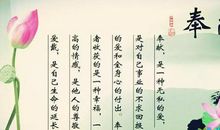 奉
奉献，是一种无私的爱，
是对自己事业的不求回报
的爱和全身心的付出。奉
者收获的是一种幸福，一
高的情感，是他人的尊敬
受戴，是自己生命的延长